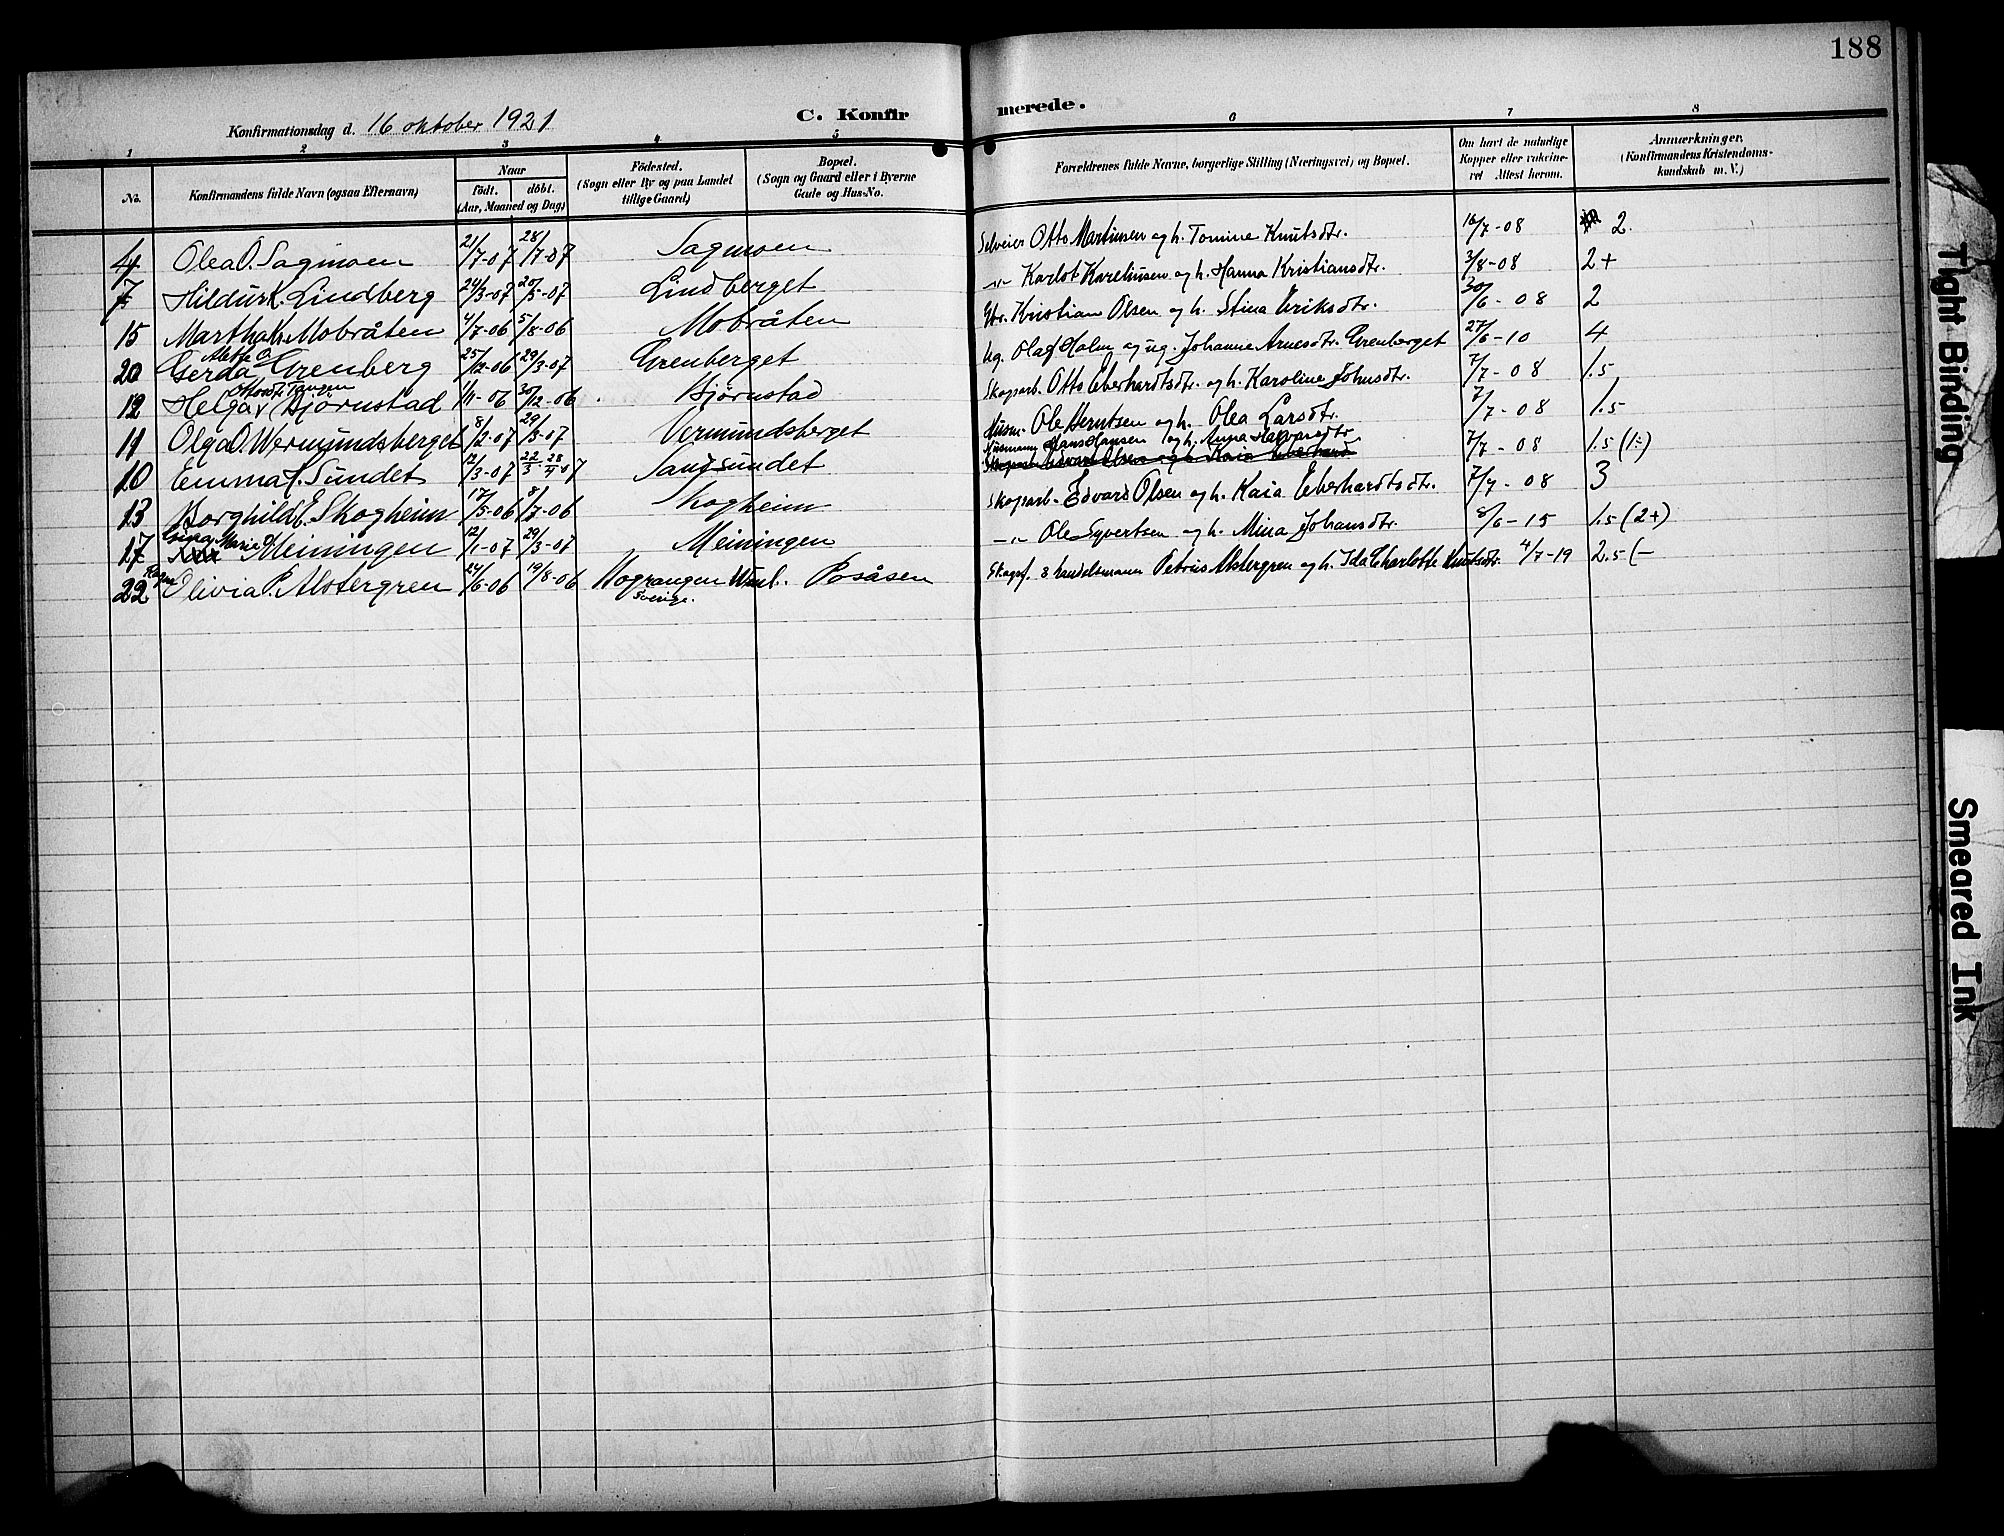 188
Konfirmationsdag d. 16 oktober 1921
C. Konfirmerede.
1 2 3 4 5 6 7 8
No. Konfirmandens fulde Navn (ogsaa Efternavn) Naar födt. döbt. (Aar, Maaned og Dag) Födested. (Sogn eller By og paa Landet tillige Gaard) Bopæl. (Sogn og Gaard eller i Byerne Gade og Hus-No.) Forældrenes fulde Navne, borgerlige Stilling (Næringsvei) og Bopæl. Om havt de naturlige Kopper eller vaksineret. Attest herom. Anmærkninger, (Konfirmandens Kristendomskundskab m. V.)
4 Olea O. Sagmoen 21/7-07 28/7-07 Sagmoen Selveier Otto Martinsen og h. Tomine Knutsdtr. 16/7-08 2.
7 Hildur K. Lindberg 24/3-07 20/5-07 Lindberget -"- Karlot Karelinsen og h. Hanna Kristiansdtr. 3/8-08 2+
15 Martha K. Mobråten 4/7-06 5/8-06 Mobråten Kristian Olsen og h. Stina Eriksdtr. 30/6-08 2
20 Gerda Grenberg 25/12-06 29/3-07 Grenberget Ug. Olaf Holm og ug. Johanne Arnesdtr. Grenberget 27/6-10 4
12 Helga Bjørnstad 1/11-06 30/12-06 Bjørnstad Skogsarb. Otto Eberhardtsdtr. og h. Karoline Johnsdtr. 7/7-08 1.5
11 Olga O. Wermundsberget 8/2-07 29/3-07 Vermundsberget Husm. Ole Berntsen og h. Olea Larsdtr. 7/7-08 1.5
10 Emma H. Sundet 12/3-07 22/3-28/4-07 Sandsundet Husmann Hans Hansen og h. Anna Halvarsdtr. 7/7-08 1.5 (1-)
13 Borghild E. Skogheim 17/5-06 8/7-06 Skogheim Skogsarb. Edvard Olsen og h. Kaia Eberhardtsdtr. 7/7-08 3
17 Marie O. Meiningen 12/1-07 29/3-07 Meiningen -"- Ole Syvertsen og h. Mina Johansdtr. 8/6-15 1.5 (2+)
22 Olivia P. Alstergren 24/6-06 19/8-06 Bograngen Sverige. Posåsen Skogsf. & handelsmann Petrus Alstergren og h. Ida Charlotte Knutsdtr. 4/7-19 2.5 (-
Tight Binding
Smeared Ink